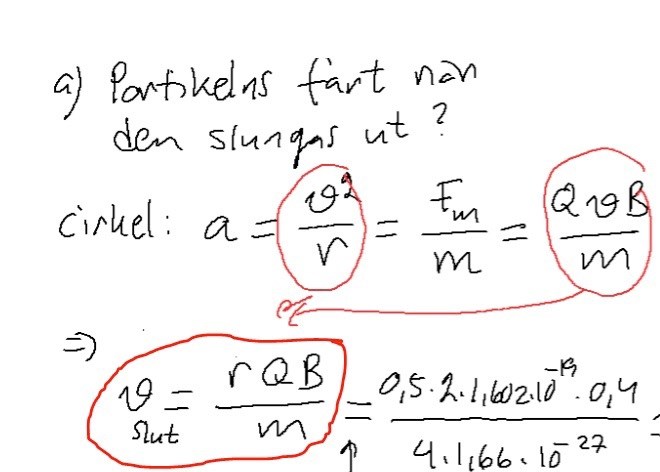 a) Partikelns fart när
den slungas ut?
cirkel: a = v²/r = Fm/m = QvB/m
=> v slut = rQB/m = 0,5·2·1,602·10^-19·0,4 / 4·1,66·10^-27 =
↑